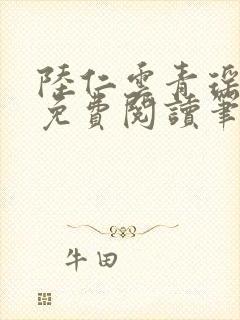 陸仁雲青瑤
免費閱讀筆
牛田